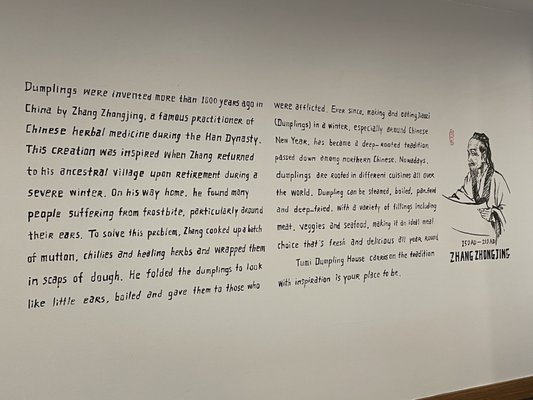 Dumplings were invented more than 1800 years ago in
China by Zhang Zhongjing, a famous practitioner of
Chinese herbal medicine during the Han Dynasty.
This creation was inspired when Zhang returned
to his ancestral village upon retirement during a
severe winter. On his way home, he found many
people suffering from frostbite, particularly around
their ears. To solve this problem, Zhang cooked up a batch
of mutton, chillies and healing herbs and wrapped them
in scaps of dough. He folded the dumplings to look
like little ears, boiled and gave them to those who
were afflicted. Ever since, making and eating Jiaozi
(Dumplings) in a winter, especially around Chinese
New Year, has become a deep-rooted tradition
passed down among northern Chinese. Nowadays,
dumplings are rooted in different cuisines all over
the world. Dumpling can be steamed, boiled, pan-fried
and deep-fried. With a variety of fillings including
meat, veggies and seafood, making it an ideal meal
choice that's fresh and delicious all year round
Tumi Dumpling House carries on the tradition
with inspiration is your place to be.
150 AD - 219 AD
ZHANG ZHONGJING